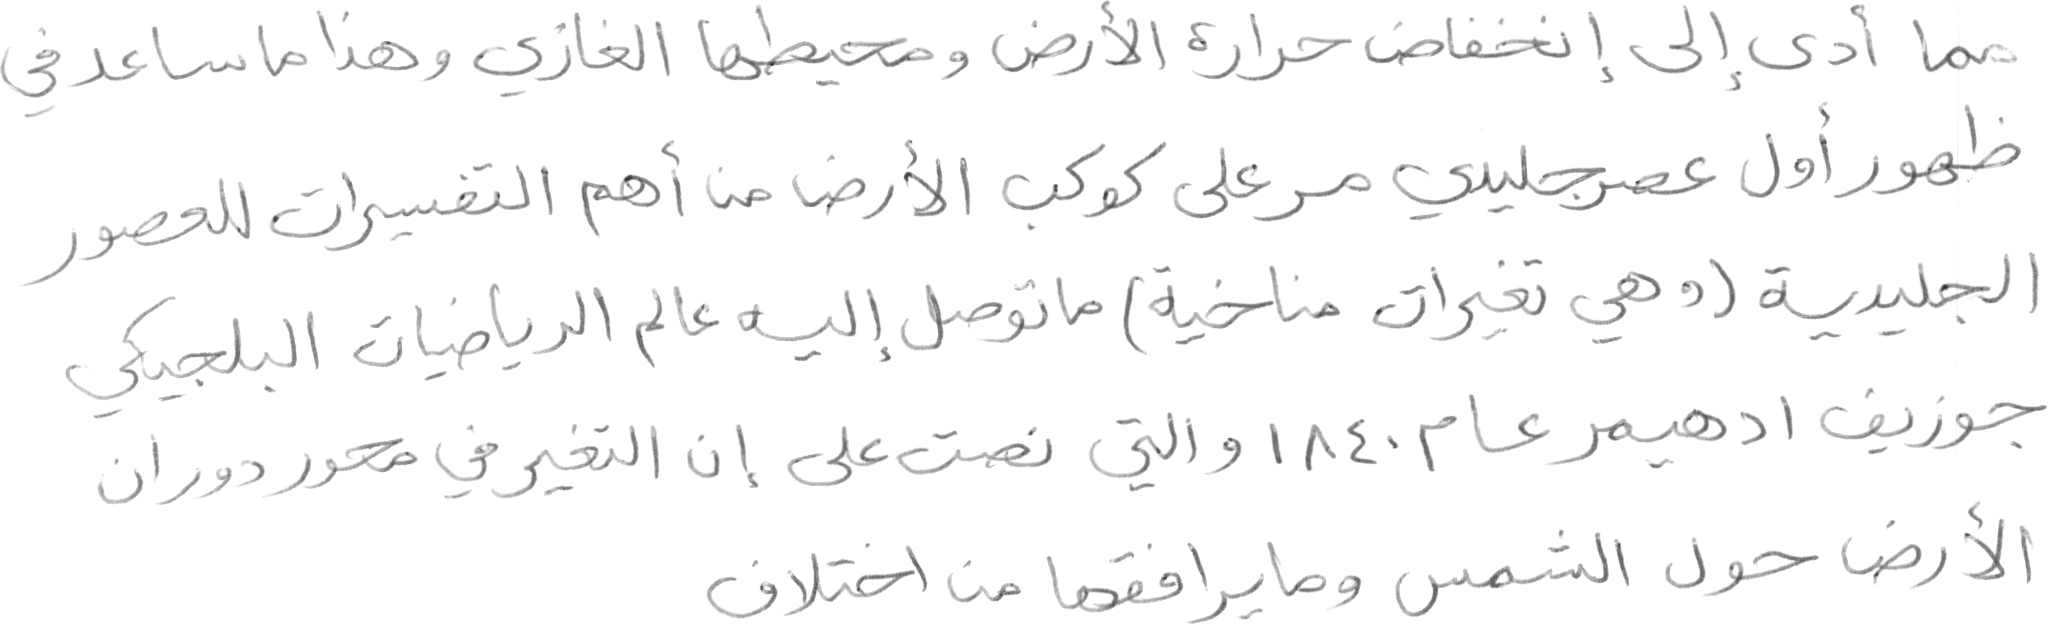 مما أدى إلى إنخفاض حرارة الأرض ومحيطها الغازي وهذا ما ساعد في
ظهور أول عصر جليدي مر على كوكب الأرض من أهم التفسيرات للعصور
الجليدية (وهي تغيرات مناخية) ما توصل إليه عالم الرياضيات البلجيكي
جوزيف ادهيمر عام ١٨٤٠ والتي نصت على إن التغير في محور دوران
الأرض حول الشمس وما يرافقها من اختلاف